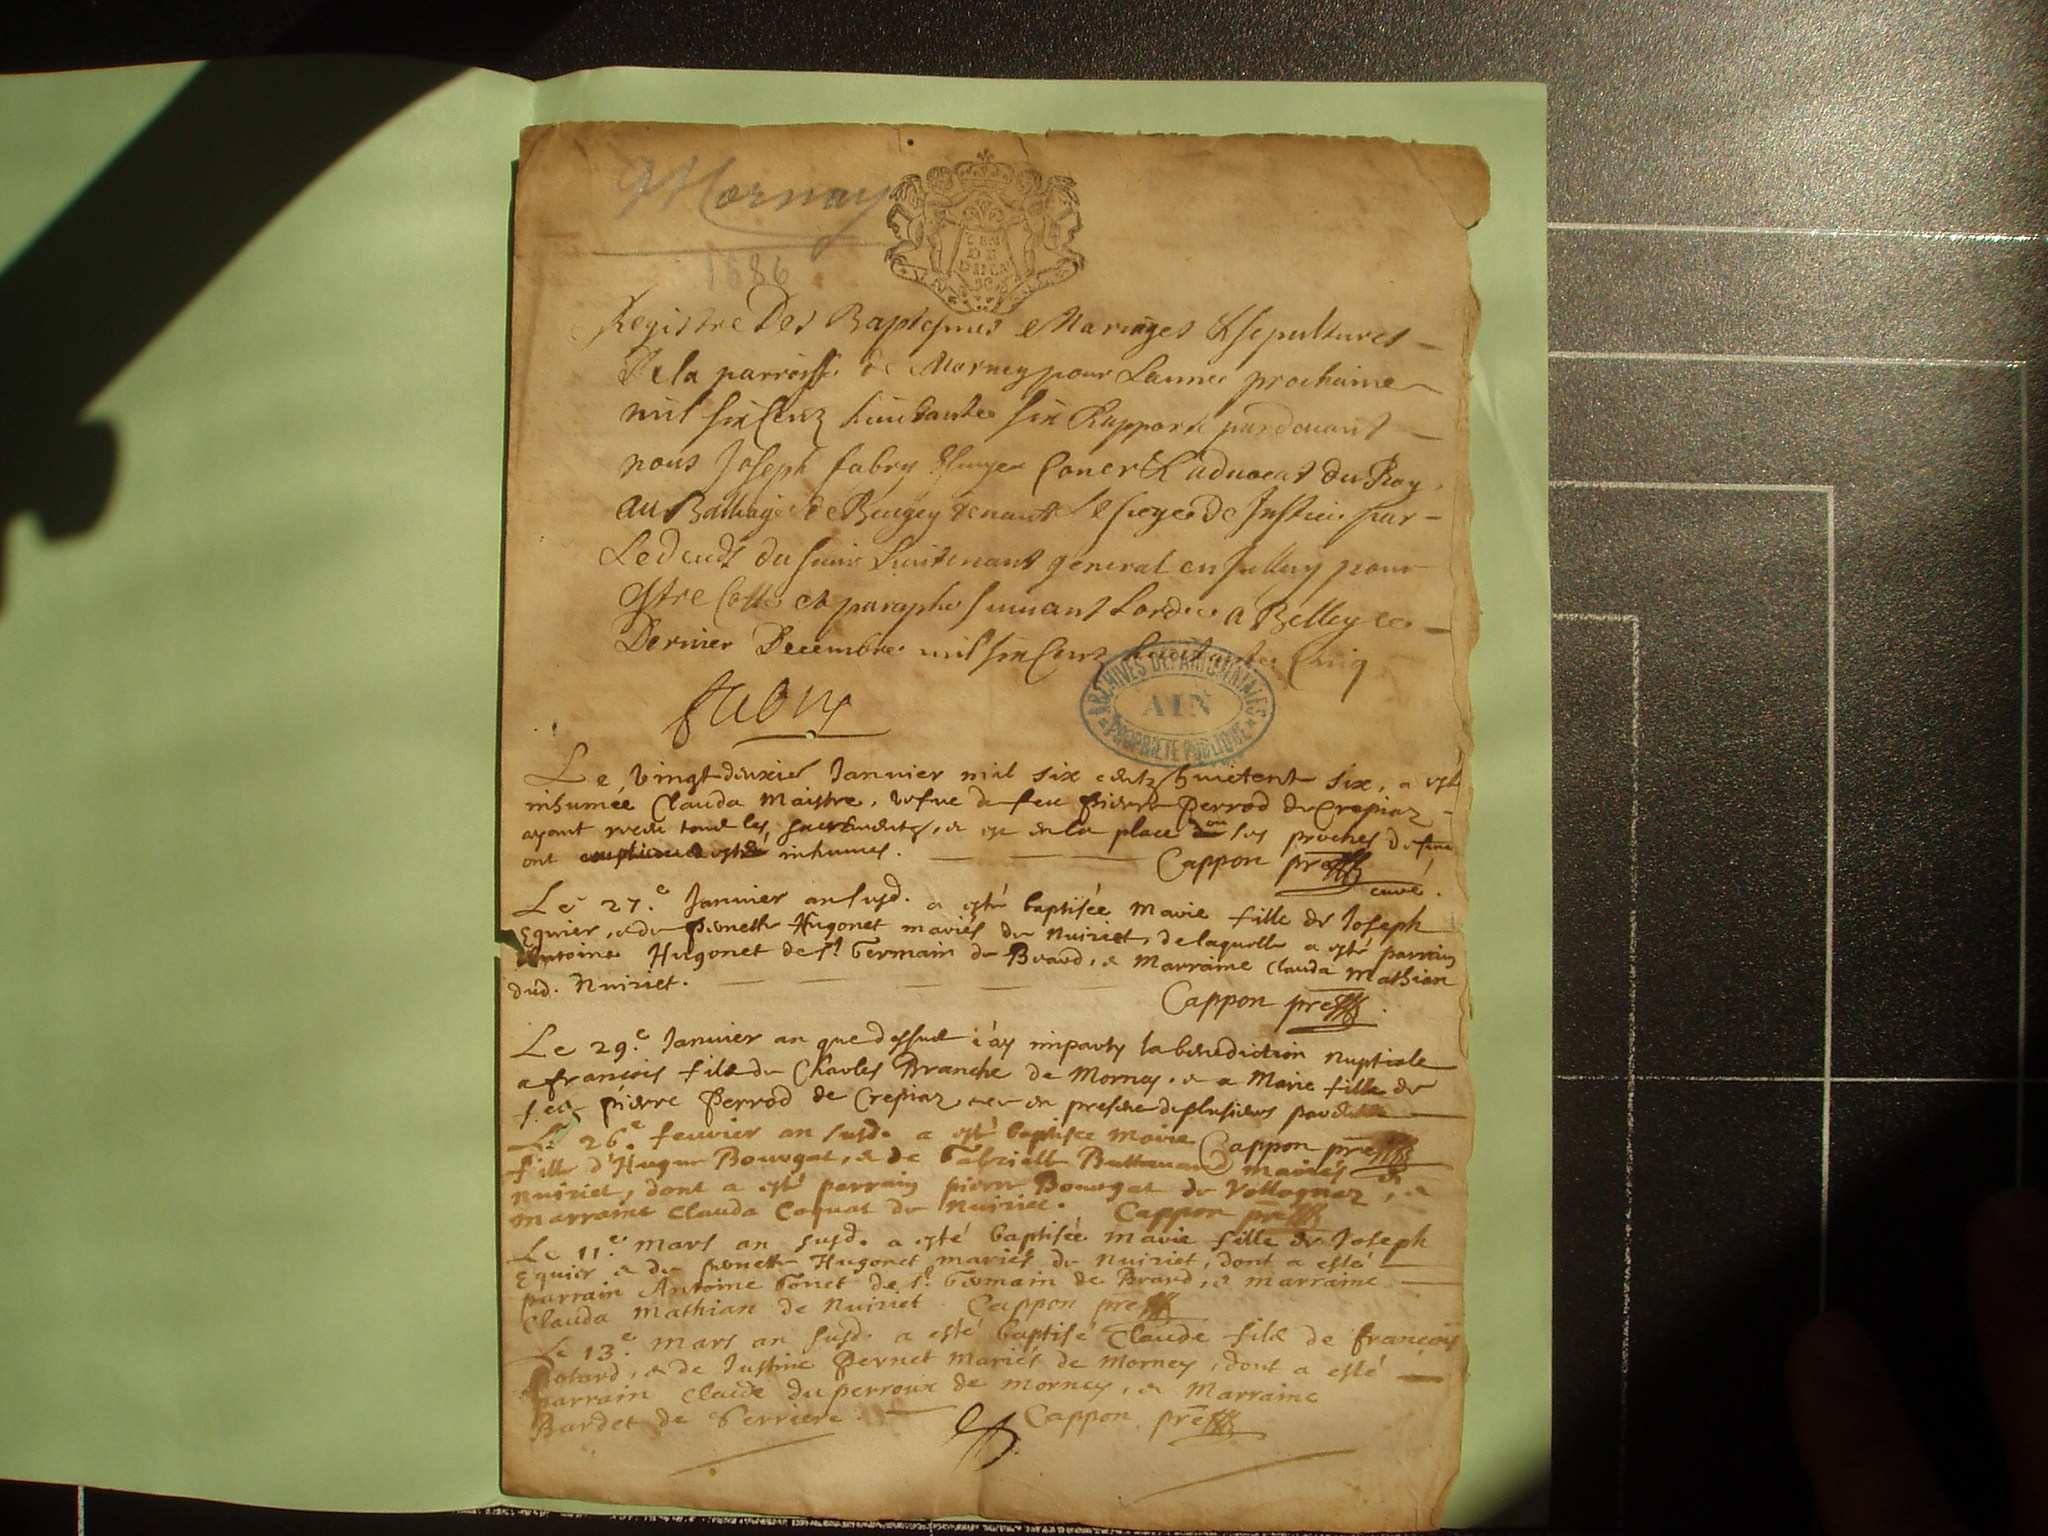 Mornay
1686
Registre Des Baptesmes Mariages & sepultures
De la parroisse de Mornay pour Lannee prochaine
mil six Cens huictante six Rapporté pardevant
nous Joseph fabry Coner & advocat du Roy
au Balliage de Beugey tenant Le siege de Justice par
Le deceds du sieur Lieutenant general en pour
estre Cotté et paraphé suivant Lordre a Belley ce
Dernier Decembre mil six Cens huictante Cinq
fabry
ARCHIVES DEPARTEMENTALES
AIN
PROPRIETE PUBLIQUE
Le vingtdeuxie Janvier mil six centz huictent six, a esté
inhumée Clauda Maistre, vefve de feu Pierre Perrod de Crepiaz
ayant receu tous les sacrements, & est en la place ou ses proches
ont esté inhumes. Cappon pre
curé.
Le 27.e Janvier an susd. a esté baptisée Marie fille de Joseph
Equier, & de Pernette Hugonet mariés de Nuiriet, de laquelle a esté parrain
Antoine Hugonet de st. Germain de Beard, & Marraine Clauda Mathian
dud. Nuiriet.
Cappon pre
Le 29.e Janvier an que dessus i'ay imparty la benediction nuptiale
a françois fils de Charles Branche de Mornay. & a Marie fille de
feu pierre Perrod de Crepiaz, & ce en presence de plusieurs
Le 26.e feuvrier an susd. a esté baptisée Marie Cappon pre
fille d'Hugue Bourgat, & de Gabrielle mariés de
Nuiriet, dont a esté parrain pierre Bourgat de Vollognaz, &
marraine Clauda Coquat de Nuiriet. Cappon pre
Le 11.e mars an susd. a esté baptisée marie fille de Joseph
Equier & de pernette Hugonet mariés de Nuiriet, dont a esté
parrain Antoine Gonet de st. Germain de Beard, & marraine
Clauda Mathian de Nuiriet. Cappon pre
Le 13.e mars an susd. a esté baptisé Claude fils de françois
& de Justine Pernet Mariés de Mornay, dont a esté
parrain Claude du perroux de mornay, & Marraine
Bardet de Cappon pre